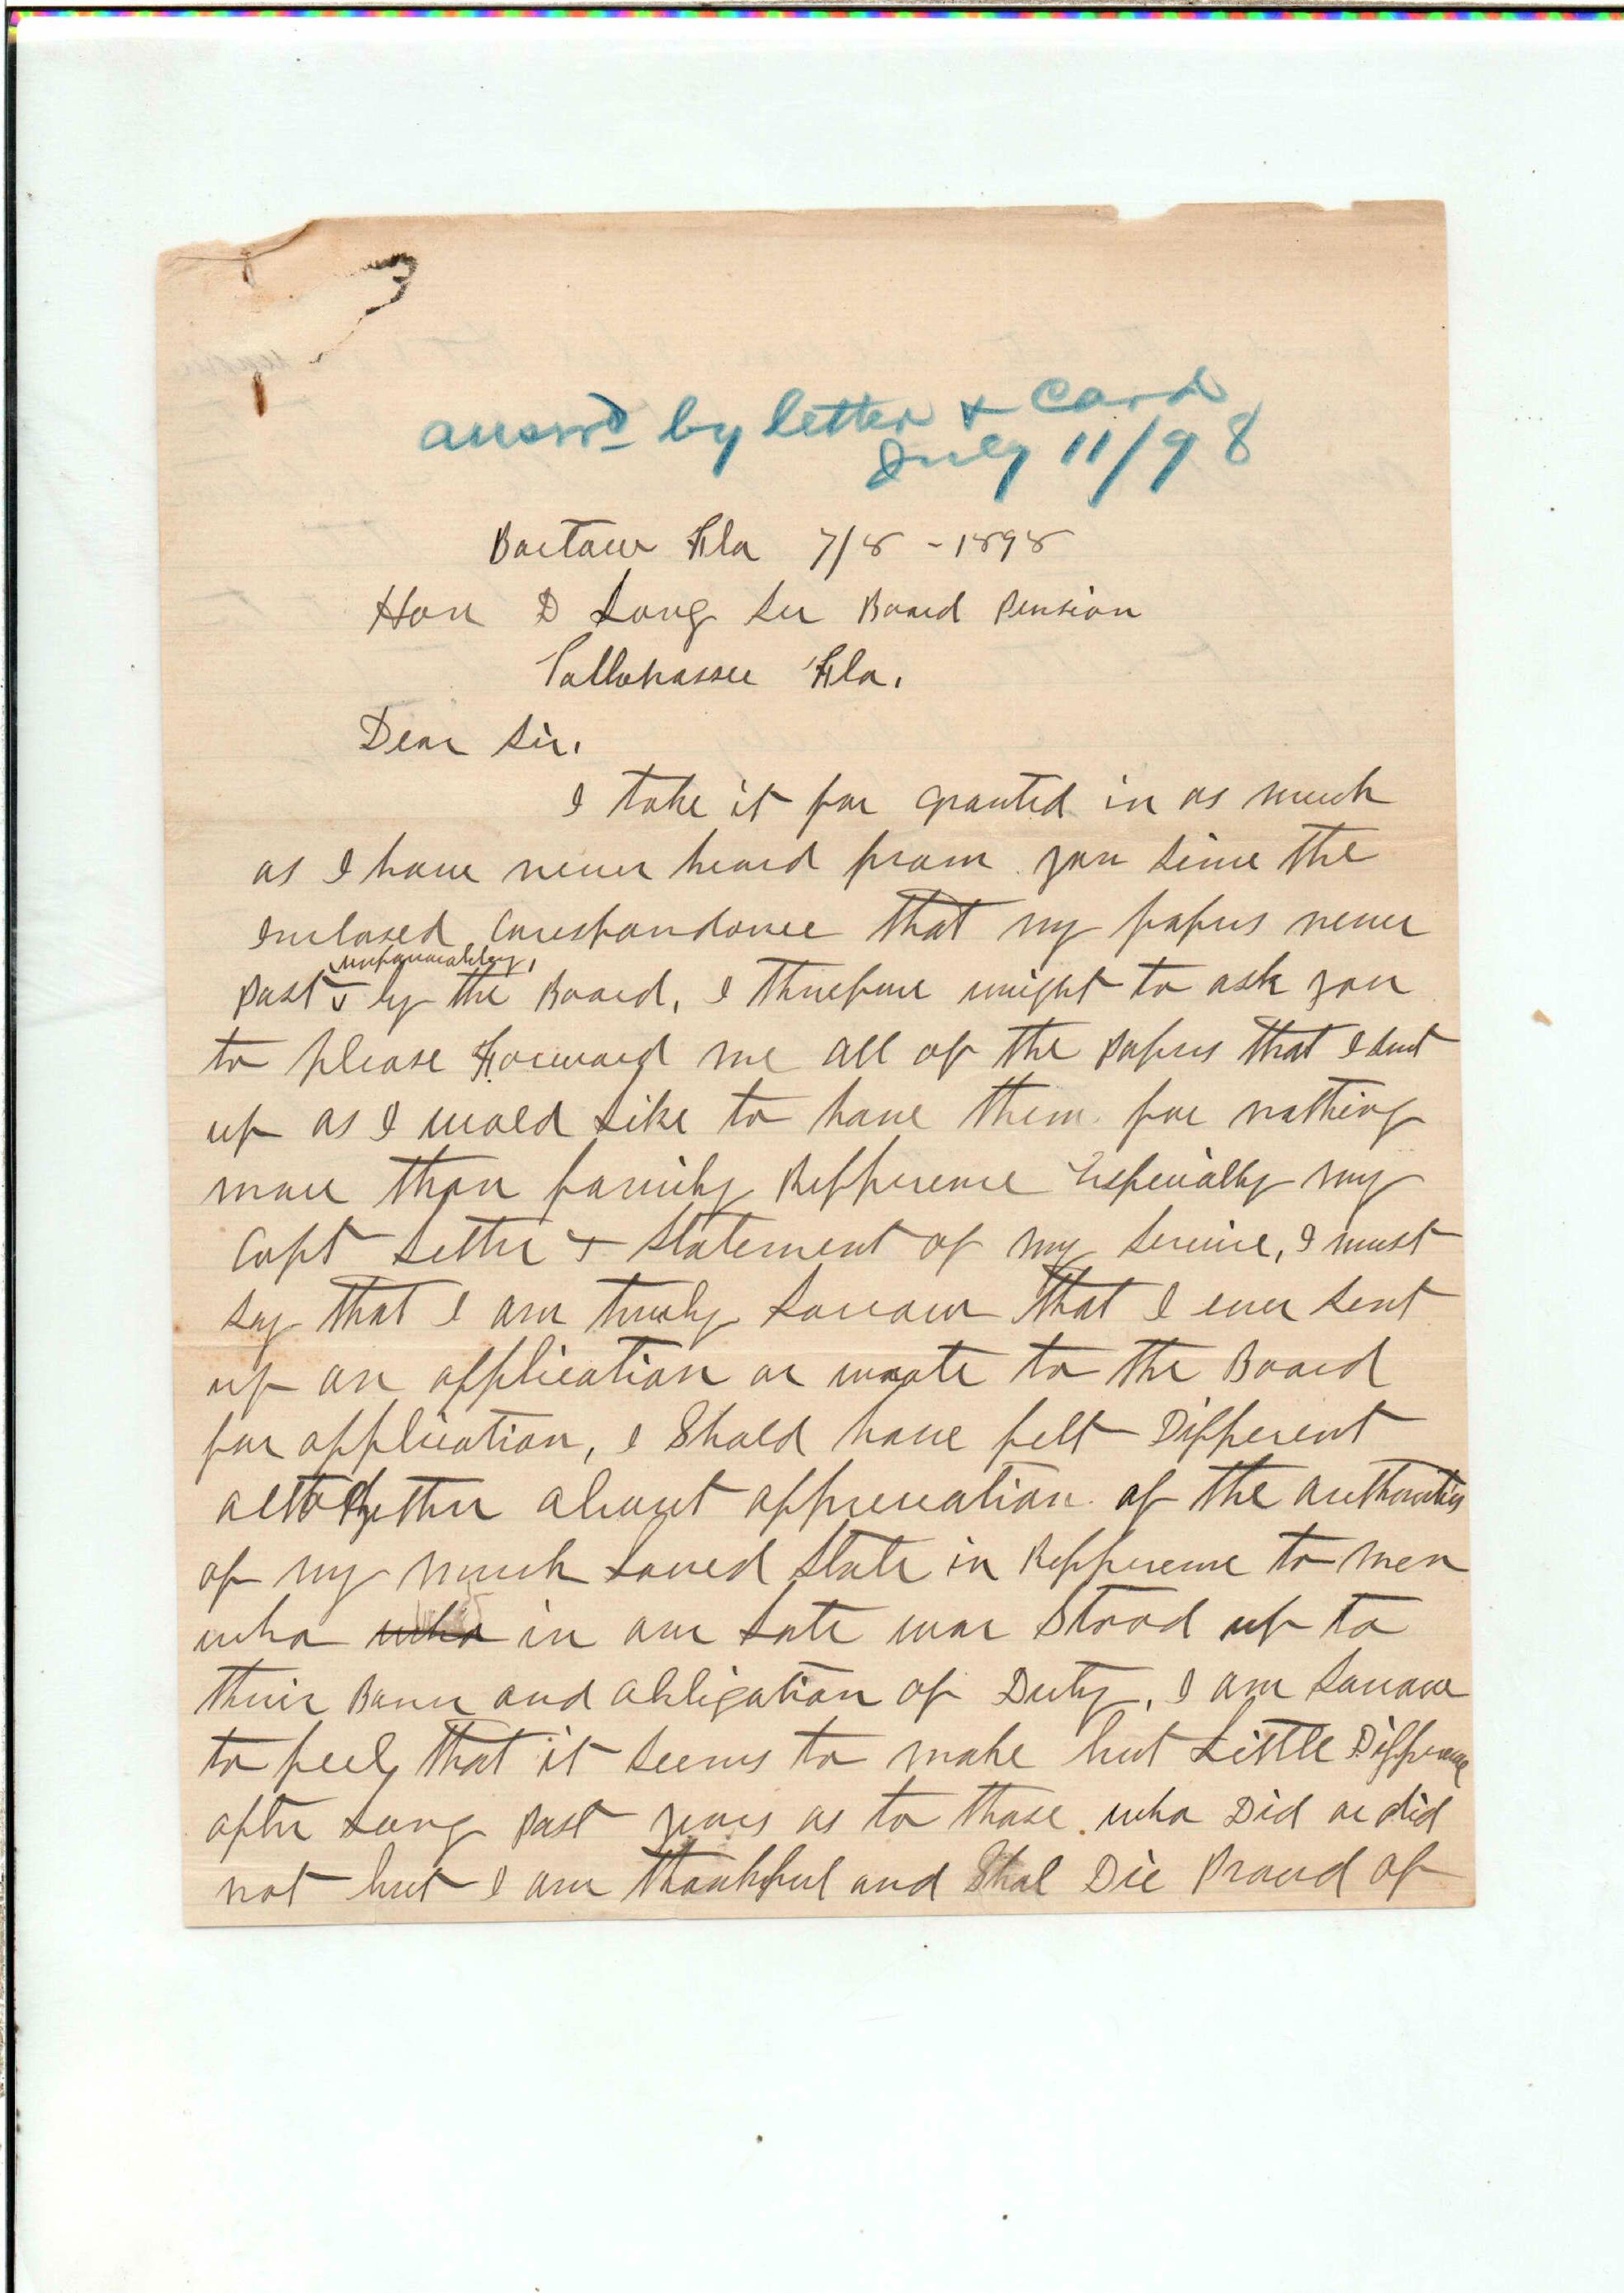 answrd by letter & Card
July 11/98
Bartow Fla 7/8 - 1898
Hon D Lang Sec Board Pension
Tallahassee Fla.
Dear Sir.
I take it for granted in as much
as I have never heard from you since the
Enclosed Corespondonce that my papers never
unfavourabley,
Past by the Board, I therefore might to ask you
to please Forward me all of the papers that I sent
up as I wold Like to have them for nothing
more than family Refference Especially my
Capt Letter & Statement of my Service, I must
say that I am truely Sorrow that I ever sent
up an application or wrote to the Board
for application, I Shold have felt Different
altogether about appreciation of the authorities
of my much Loved State in Refference to men
who who in our Late war Stood up to
their and obligation of Duty, I am Sorrow
to feel that it seems to make but Little Difference
after Long past years as to those who Did or did
not but I am thankful and Shal Die Proud of